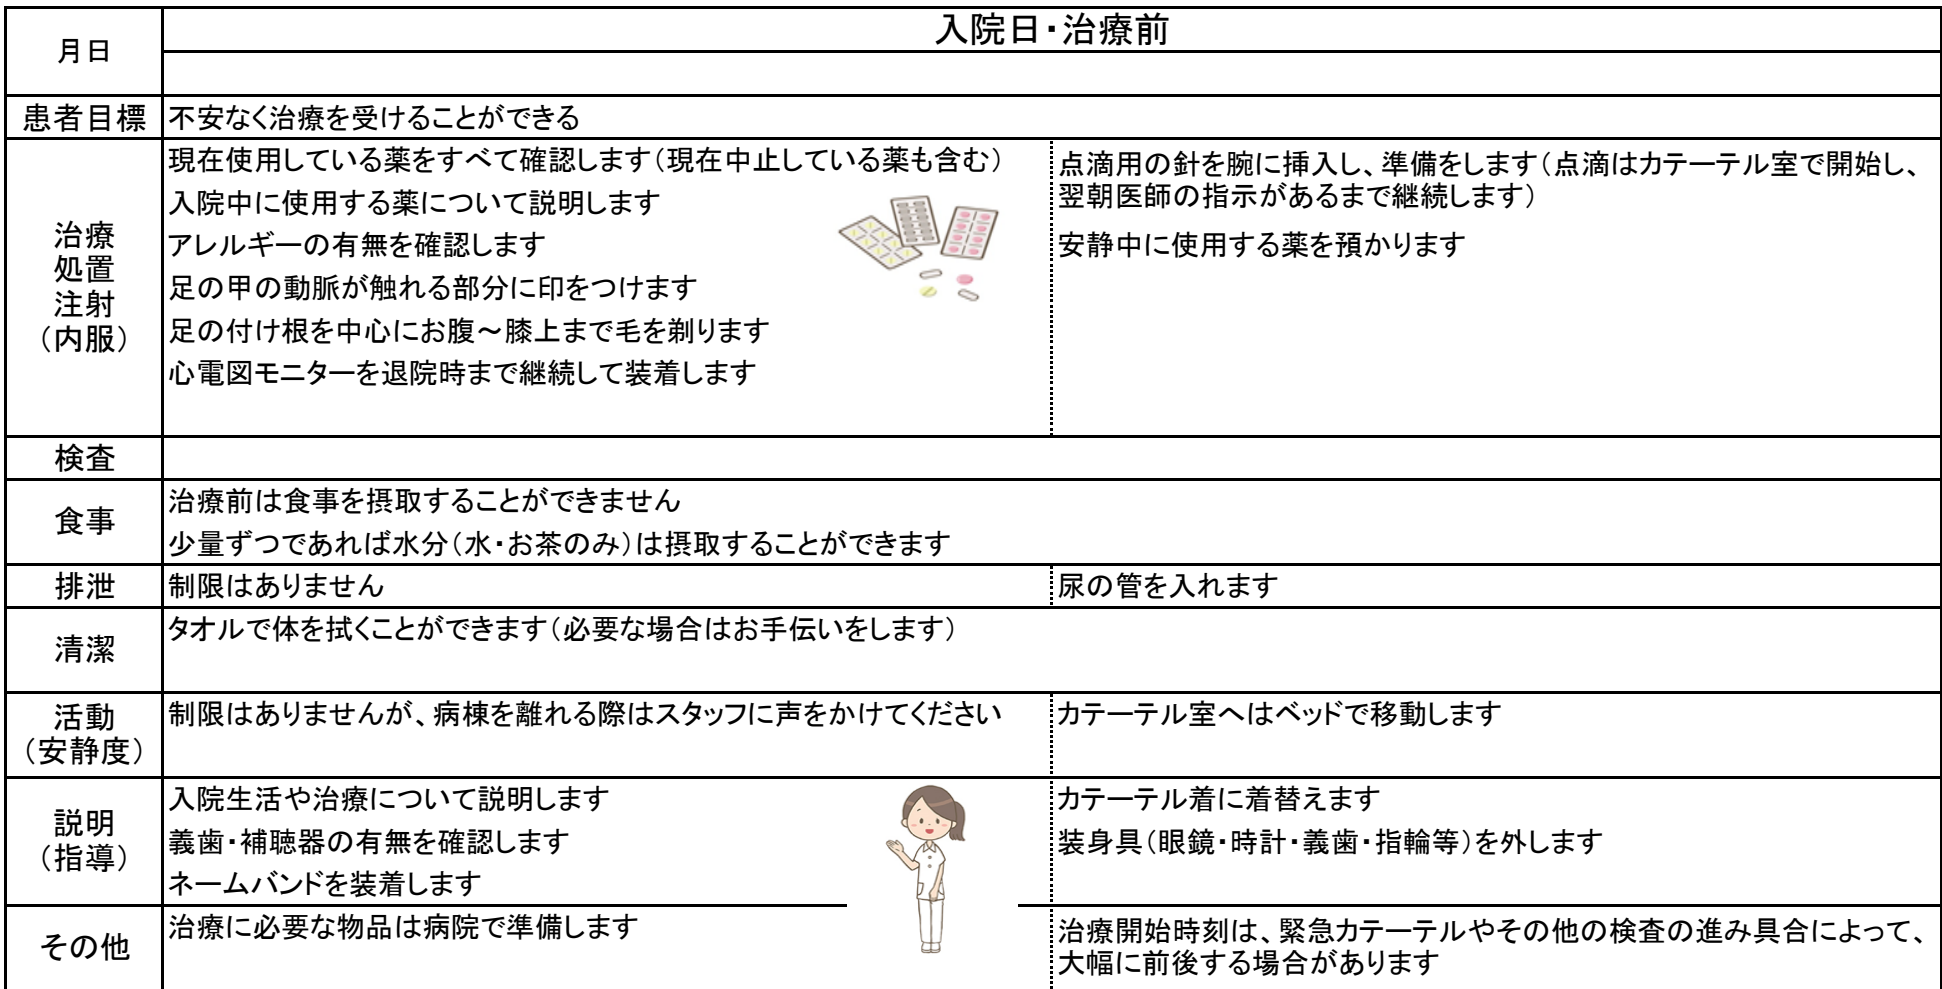 月日
入院日・治療前
患者目標
不安なく治療を受けることができる
治療
処置
注射
（内服）
現在使用している薬をすべて確認します（現在中止している薬も含む）
入院中に使用する薬について説明します
アレルギーの有無を確認します
足の甲の動脈が触れる部分に印をつけます
足の付け根を中心にお腹～膝上まで毛を剃ります
心電図モニターを退院時まで継続して装着します
点滴用の針を腕に挿入し、準備をします（点滴はカテーテル室で開始し、
翌朝医師の指示があるまで継続します）
安静中に使用する薬を預かります
検査
食事
治療前は食事を摂取することができません
少量ずつであれば水分（水・お茶のみ）は摂取することができます
排泄
制限はありません
尿の管を入れます
清潔
タオルで体を拭くことができます（必要な場合はお手伝いをします）
活動
（安静度）
制限はありませんが、病棟を離れる際はスタッフに声をかけてください
カテーテル室へはベッドで移動します
説明
（指導）
入院生活や治療について説明します
義歯・補聴器の有無を確認します
ネームバンドを装着します
カテーテル着に着替えます
装身具（眼鏡・時計・義歯・指輪等）を外します
その他
治療に必要な物品は病院で準備します
治療開始時刻は、緊急カテーテルやその他の検査の進み具合によって、
大幅に前後する場合があります